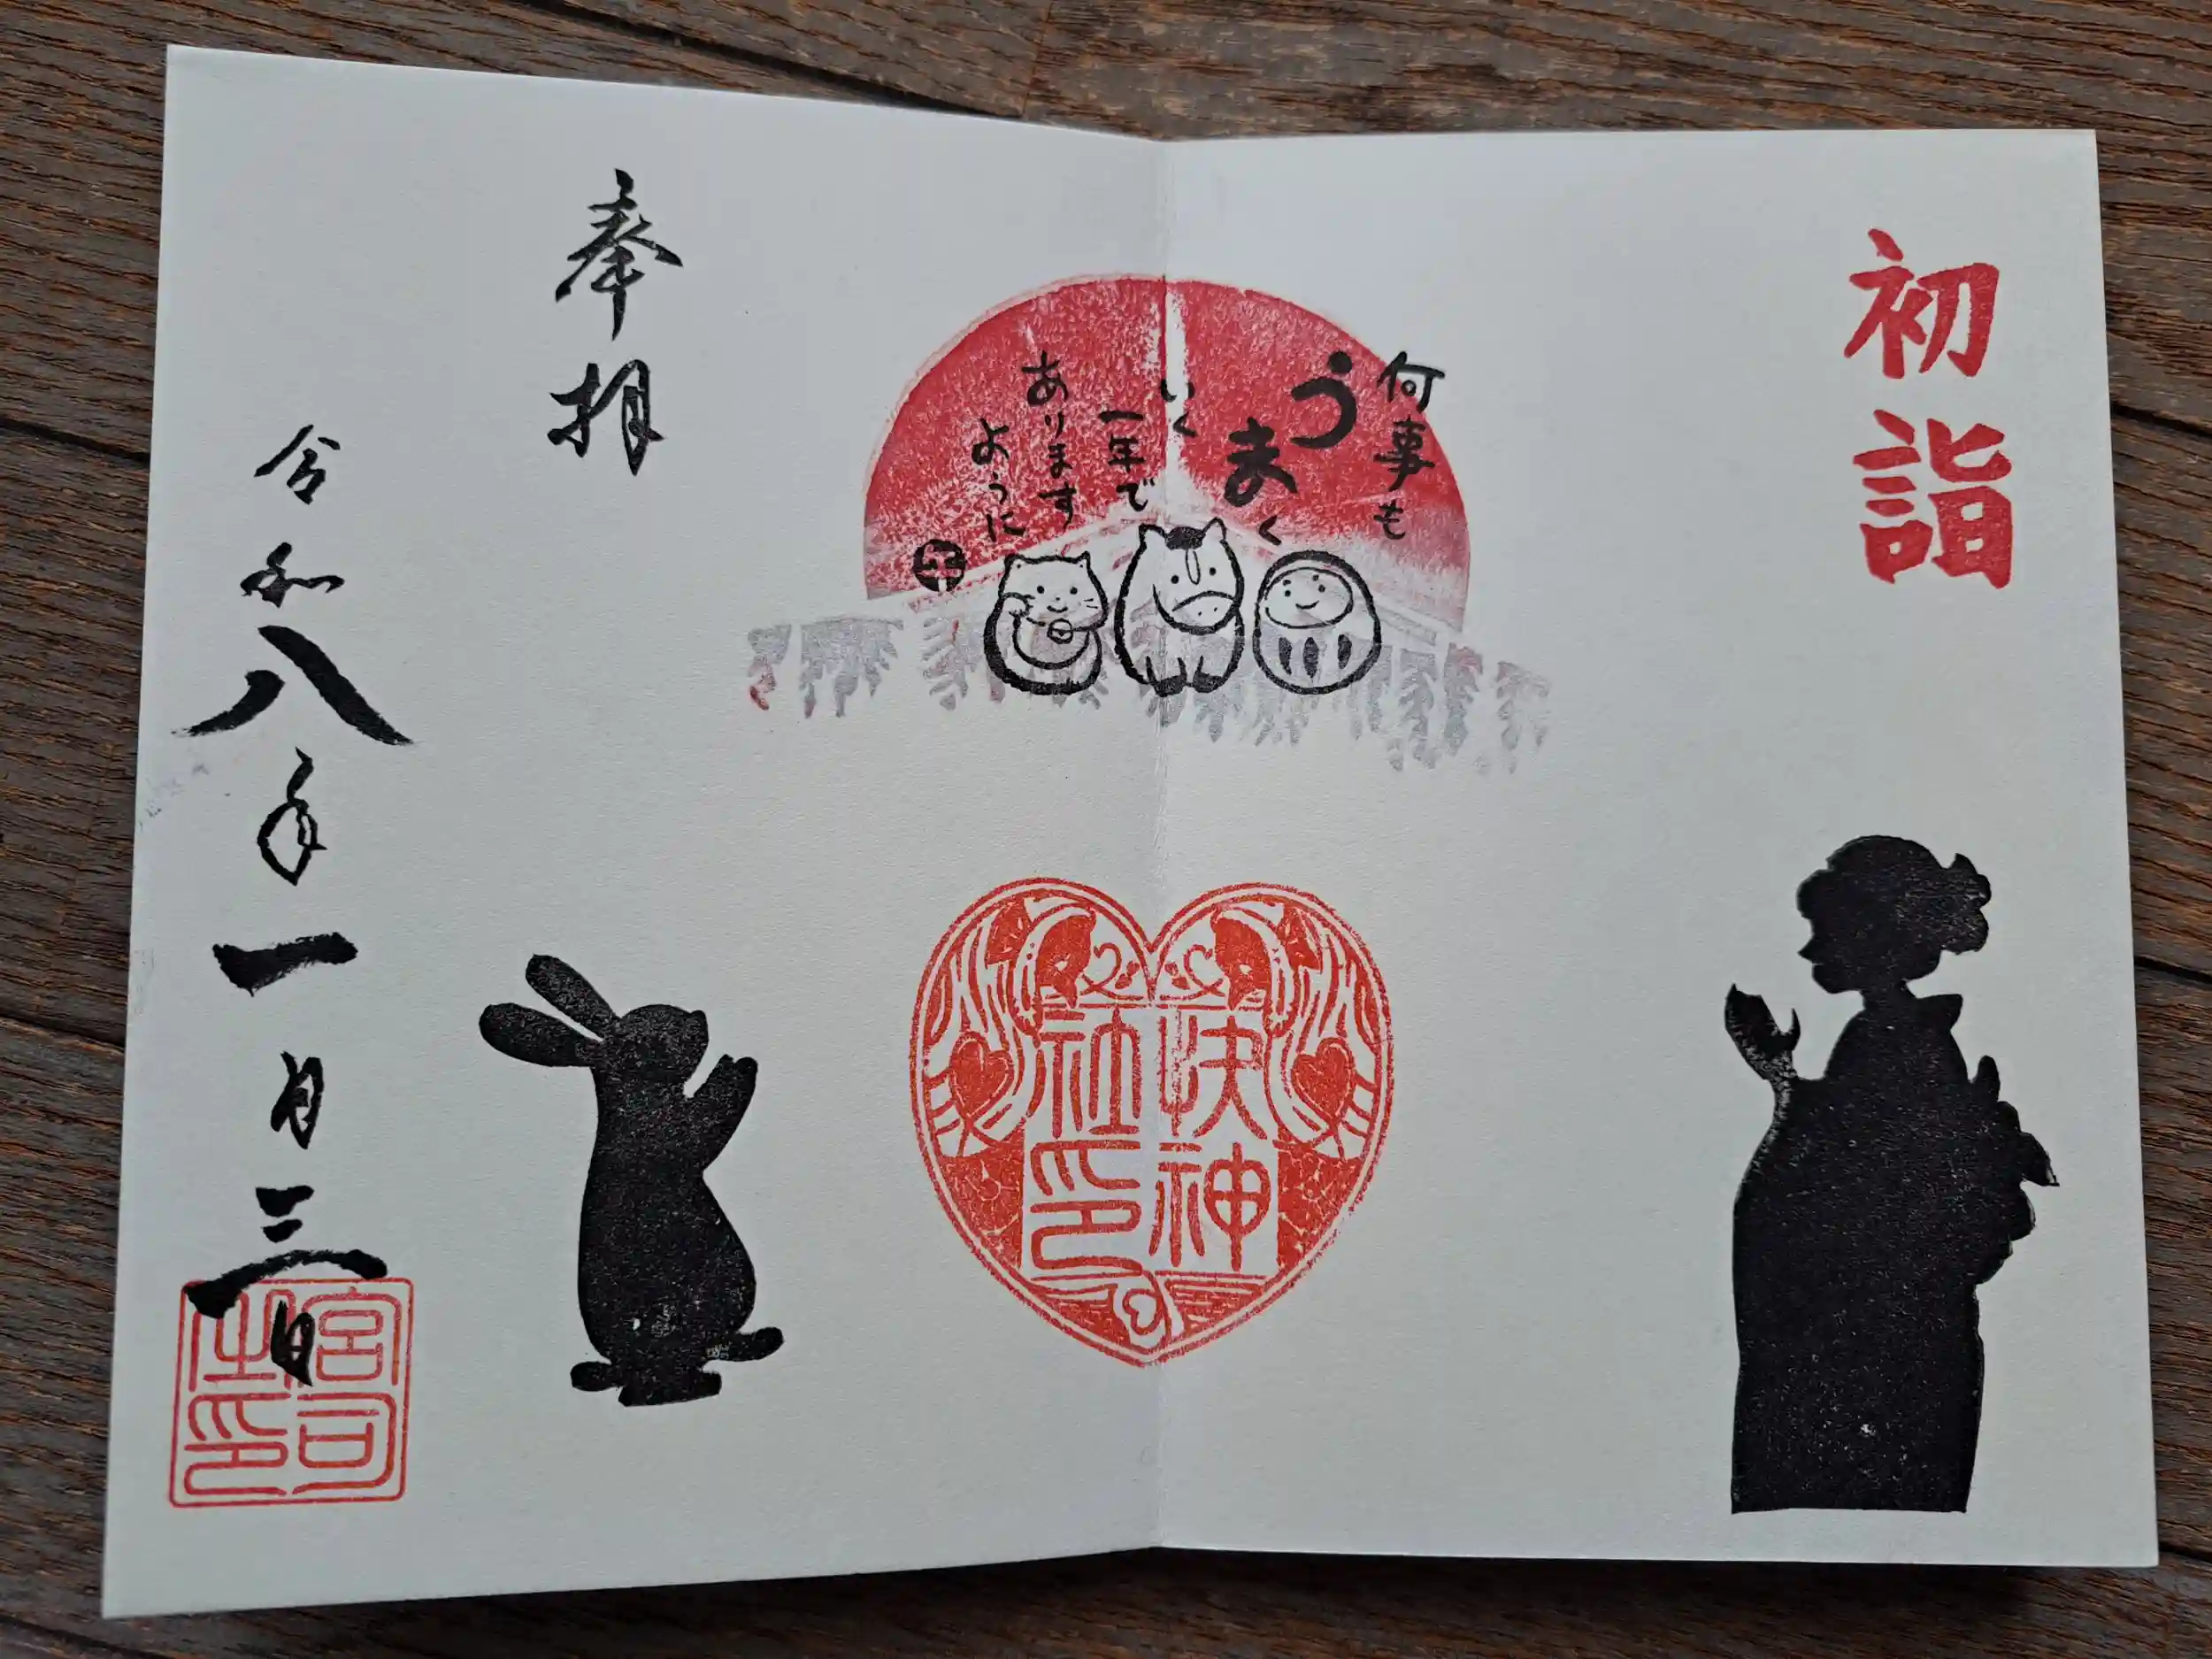 初詣
何事も
うまく
いく
一年で
あります
ように
快神
社印
奉拝
令和八年一月三日
宮司
之印